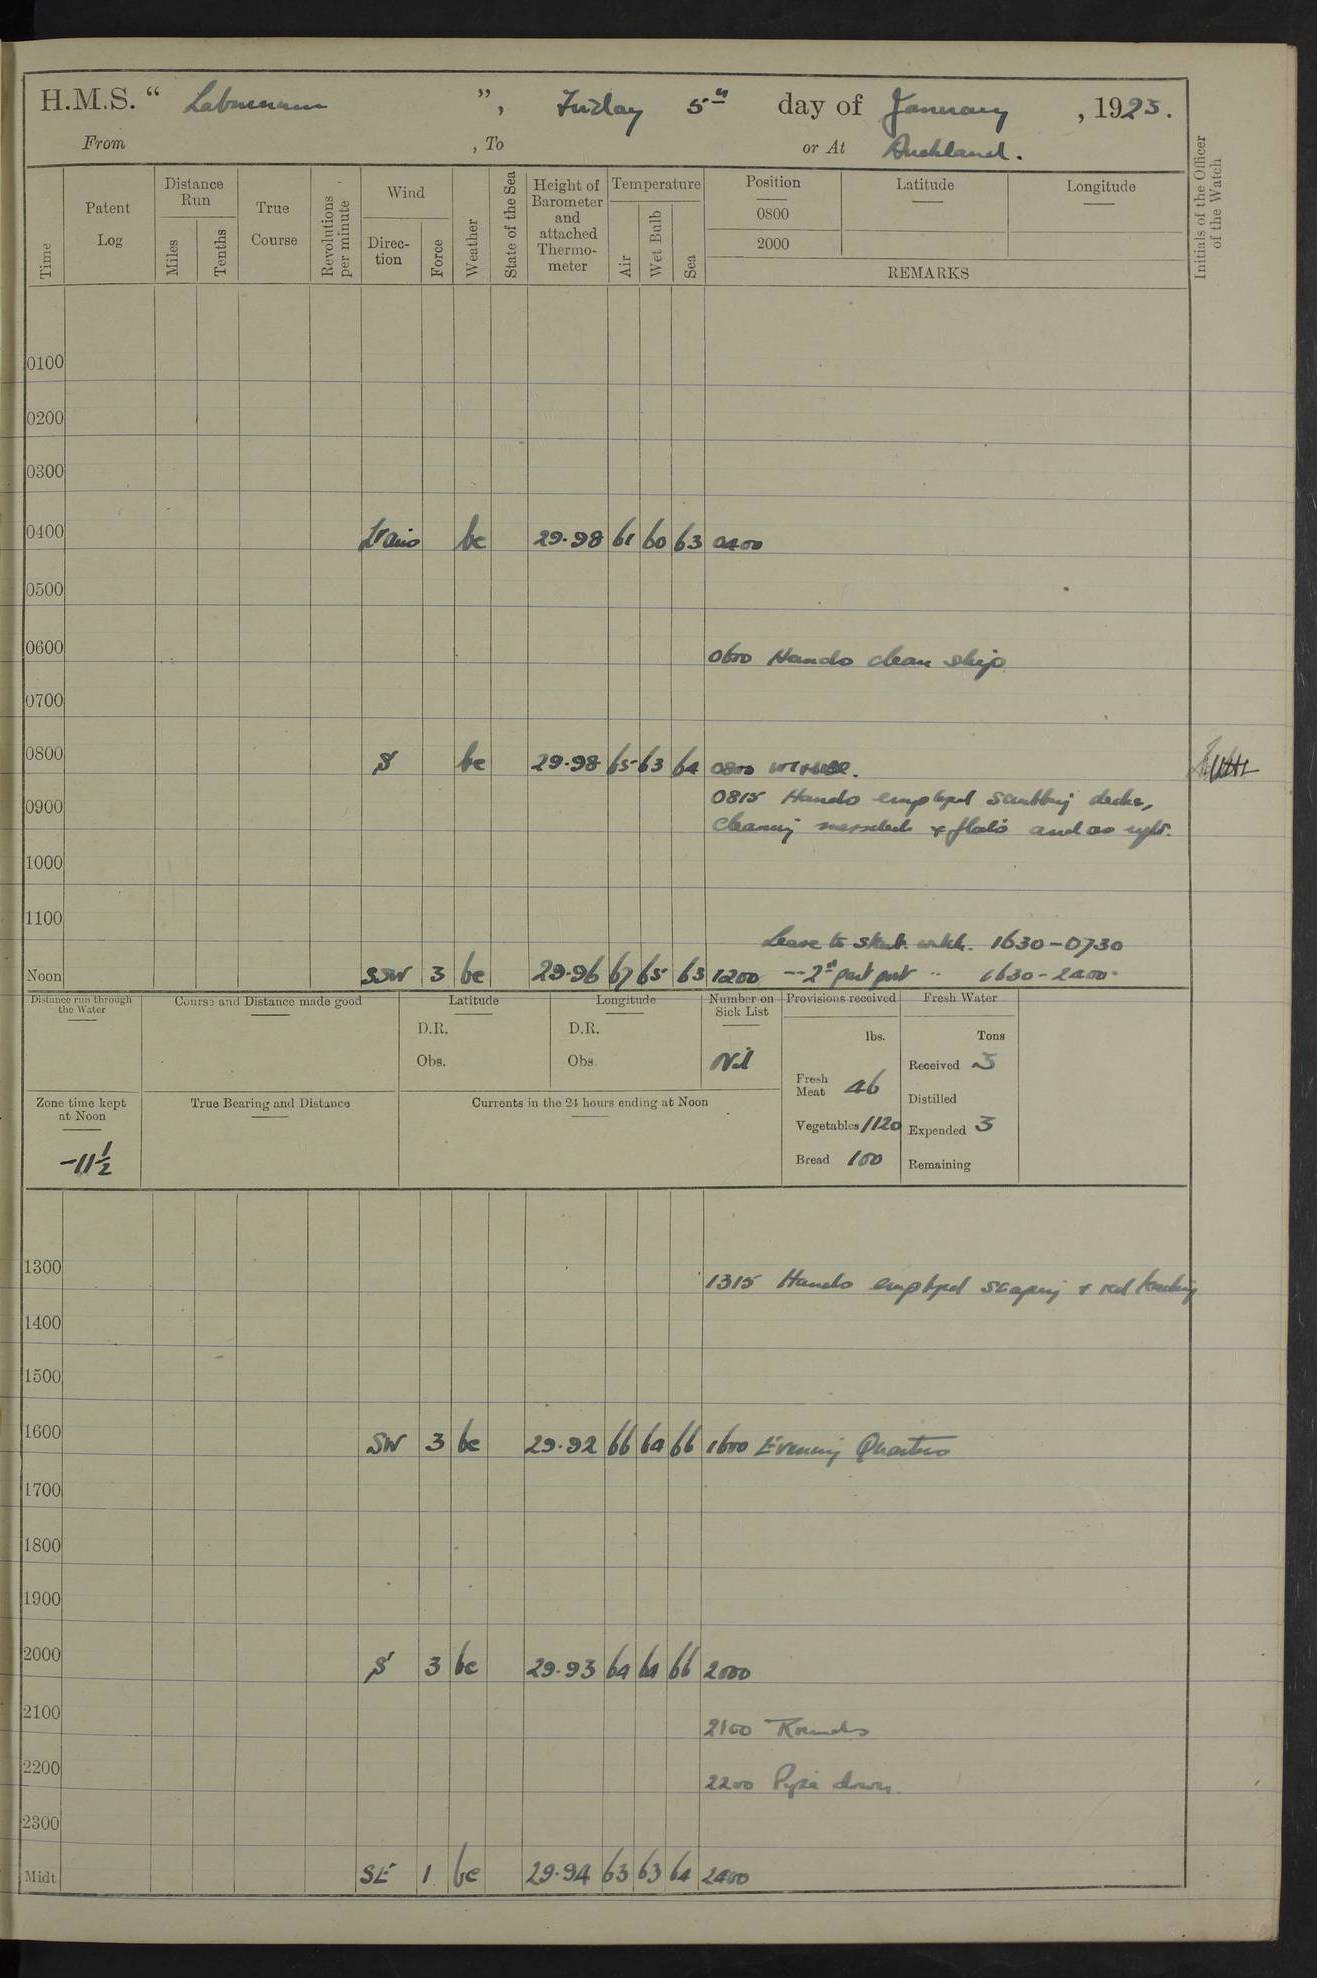 H.M.S. “ Laburnum ”, Friday 5th day of January , 1923.
From , To or At Auckland.
Time
Patent Log
Distance Run
Miles
Tenths
True Course
Revolutions per minute
Wind
Direc-tion
Force
Weather
State of the Sea
Height of Barometer and attached Thermo-meter
Temperature
Air
Wet Bulb
Sea
Position Latitude Longitude
0800
2000
REMARKS
Initials of the Officer of the Watch
0100
0200
0300
0400 bc 29.98 61 60 63 0400
0500
0600
0600 Hands clean ship
0700
0800 S bc 29.98 65 63 64 0800
0815 Hands employed scrubbing decks,
0900
cleaning messdeck & flats and as reqt.
1000
1100
Leave to starb. watch. 1630-0730
Noon SSW 3 bc 29.96 67 65 63 1200 -- 2nd part port " 1630-2400
Distance run through the Water
Course and Distance made good
Latitude
D.R.
Obs.
Longitude
D.R.
Obs.
Number on Sick List
Nil
Provisions received
lbs.
Fresh Meat 46
Vegetables 1120
Bread 100
Fresh Water
Tons
Received 3
Distilled
Expended 3
Remaining
Zone time kept at Noon
-11½
True Bearing and Distance
Currents in the 24 hours ending at Noon
1300
1315 Hands employed scraping & red leading
1400
1500
1600 SW 3 bc 29.92 66 64 66 1600 Evening Quarters
1700
1800
1900
2000 S 3 bc 29.93 64 64 66 2000
2100
2100 Rounds
2200
2200 Pipe down.
2300
Midt. SE 1 bc 29.94 63 63 64 2400